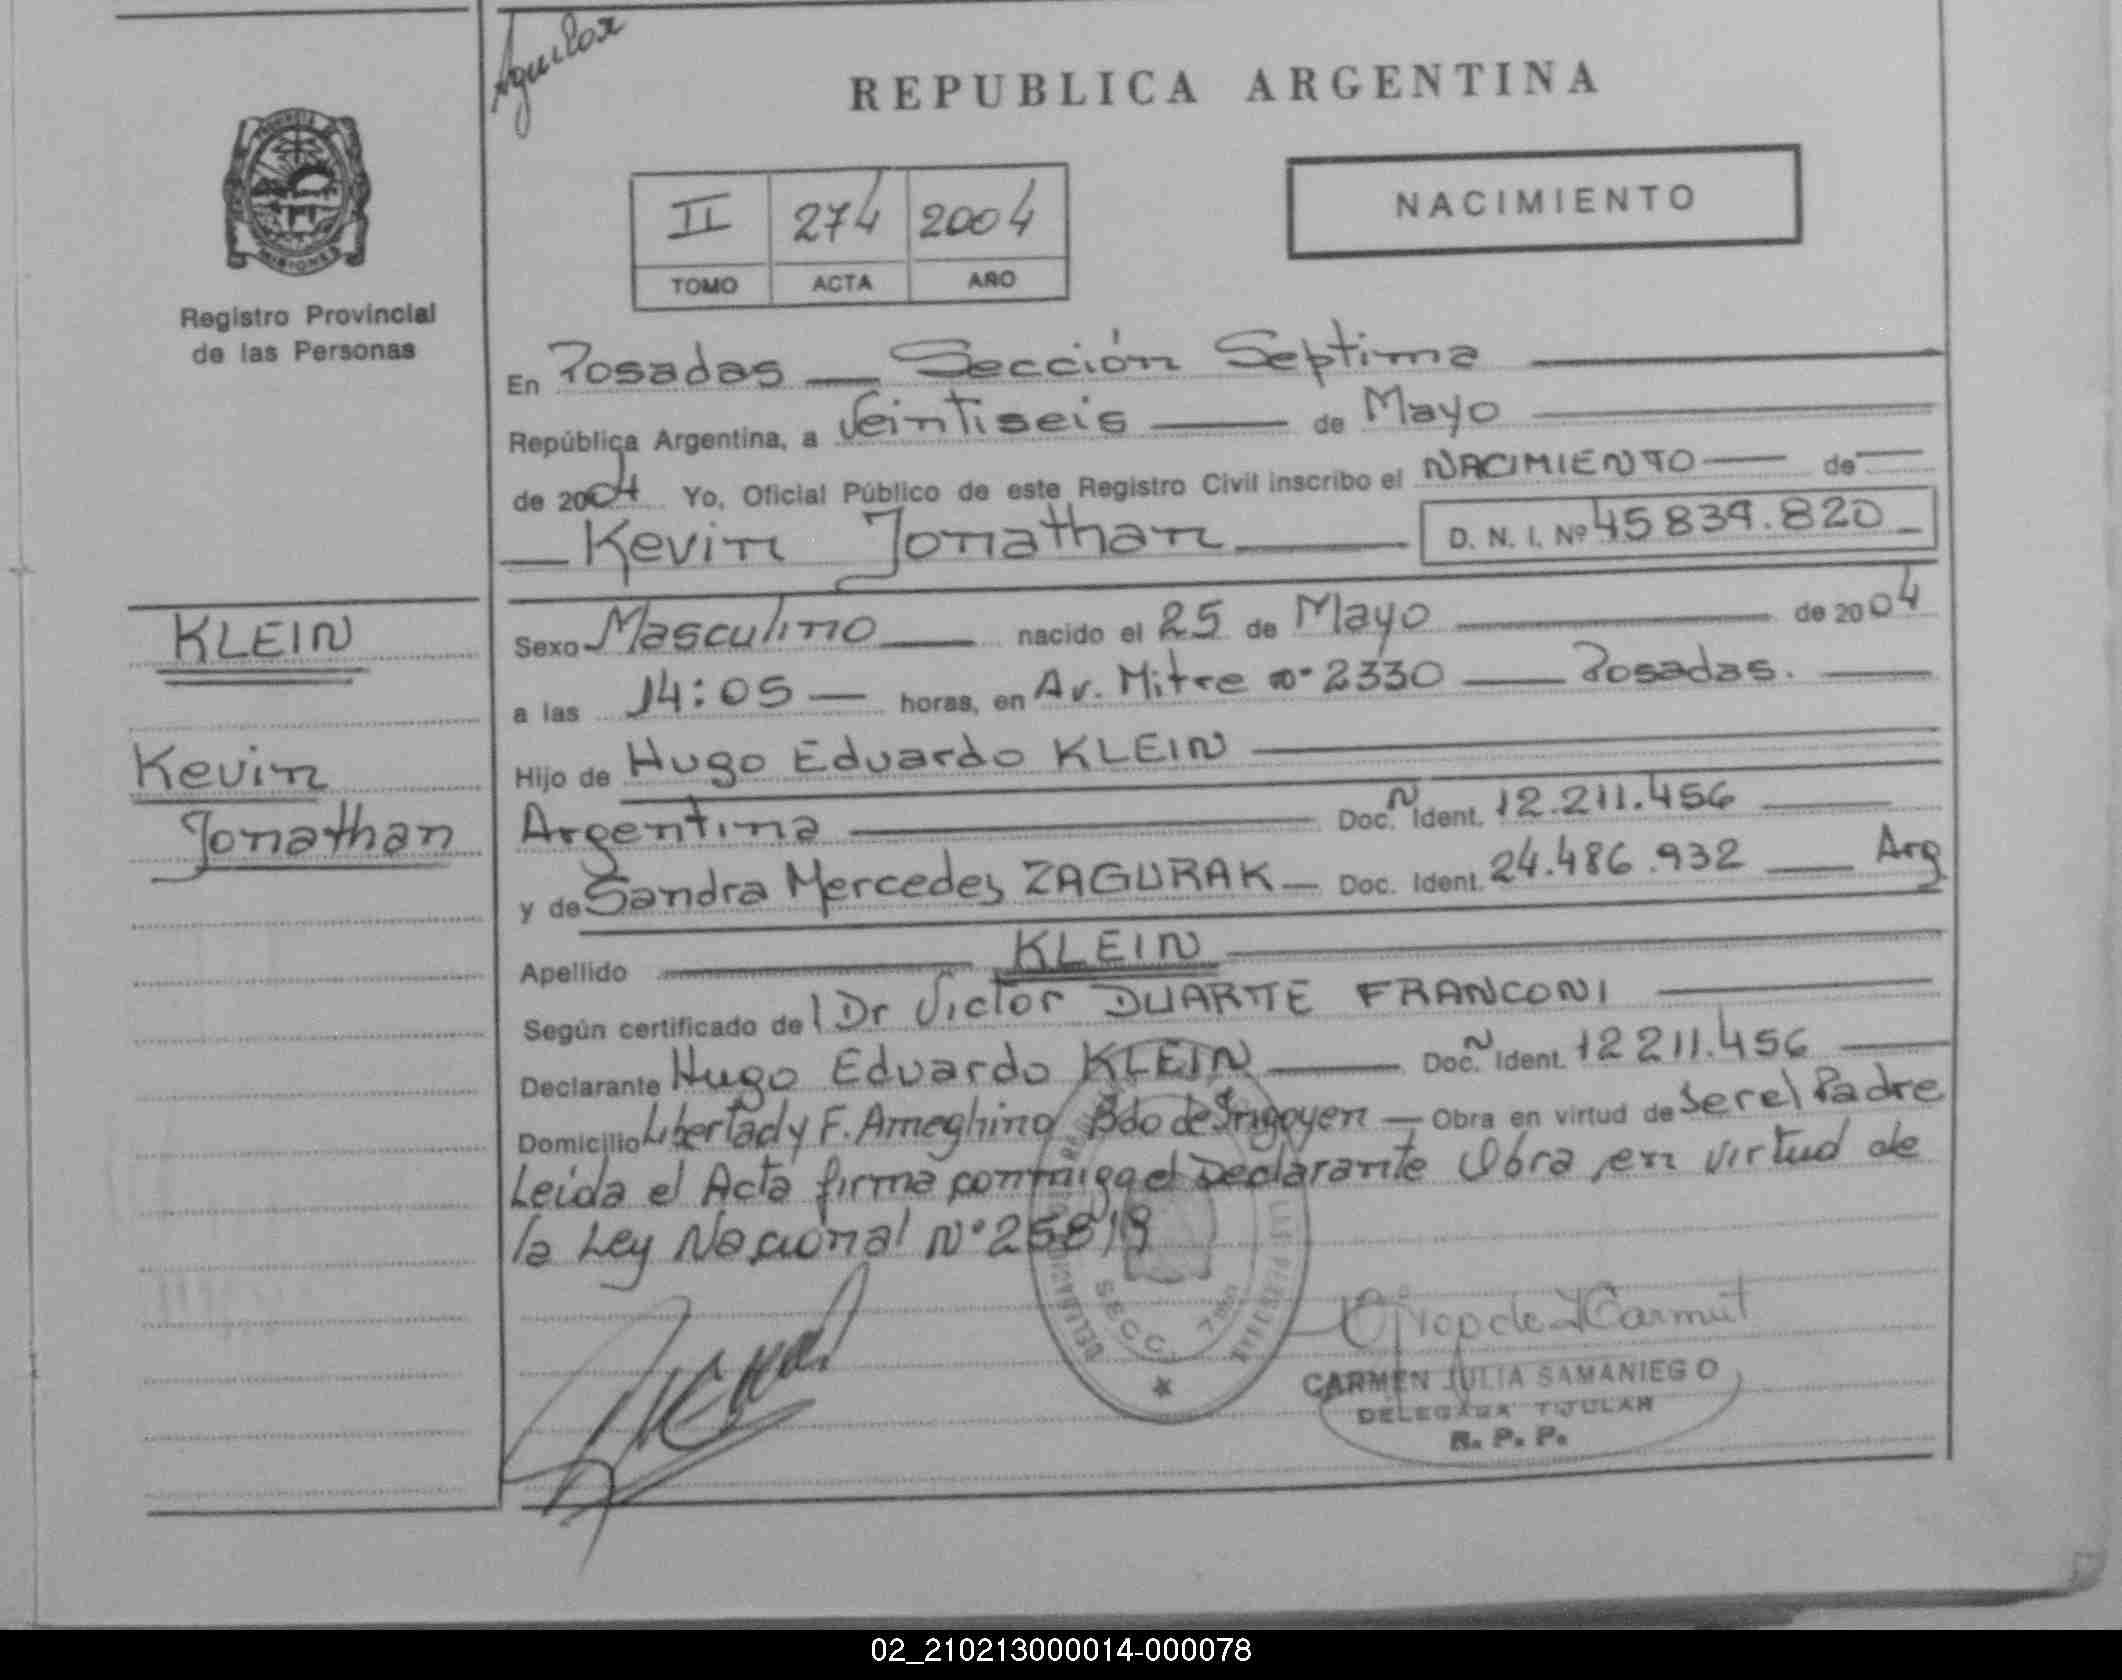 Aguilar
REPUBLICA ARGENTINA
PROVINCIA DE
MISIONES
Registro Provincial
de las Personas
II 274 2004
TOMO ACTA AÑO
NACIMIENTO
En Posadas — Sección Septima
República Argentina, a Veintiseis — de Mayo
de 2004 Yo, Oficial Público de este Registro Civil inscribo el NACIMIENTO — de
— Kevin Jonathan — D. N. I. Nº 45839.820 —
KLEIN
Kevin
Jonathan
Sexo Masculino — nacido el 25 de Mayo — de 2004
a las 14:05 — horas, en Av. Mitre nº 2330 — Posadas. —
Hijo de Hugo Eduardo KLEIN —
Argentina — Doc. N Ident. 12.211.456 —
y de Sandra Mercedes ZAGURAK — Doc. Ident. 24.486.932 — Arg
Apellido — KLEIN —
Según certificado del Dr Victor DUARTE FRANCONI —
Declarante Hugo Eduardo KLEIN — Doc. N Ident. 12211.456 —
Domicilio Libertad y F. Ameghino Bdo de Irigoyen — Obra en virtud de Ser el Padre
Leída el Acta firma conmigo el Declarante Obra en virtud de
la Ley Nacional Nº 25819
SECC. 7ma
CARMEN JULIA SAMANIEGO
DELEGADA TITULAR
R. P. P.
02_210213000014-000078